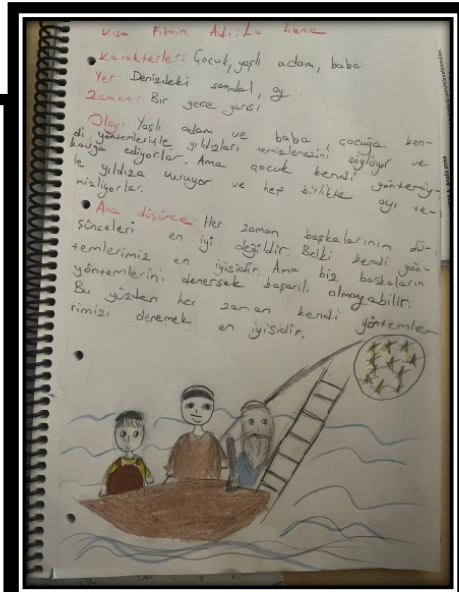 Kısa Filmin Adı: La Luna
• Karakterler: Çocuk, yaşlı adam, baba
Yer: Denizdeki sandal, ay.
Zaman: Bir gece yarısı
Olay: Yaşlı adam ve baba, çocuğa ken-
di yöntemleriyle yıldızları temizlemesini söylüyor ve
kavga ediyorlar. Ama çocuk kendi yöntemiy-
le yıldıza vuruyor ve hep birlikte ayı te-
mizliyorlar.
• Ana düşünce: Her zaman başkalarının dü-
şünceleri en iyi değildir. Belki kendi yön-
temlerimiz en iyisidir. Ama biz başkaların
yöntemlerini denersek başarılı olmayabilir.
Bu yüzden her zaman kendi yöntemle-
rimizi denemek en iyisidir.